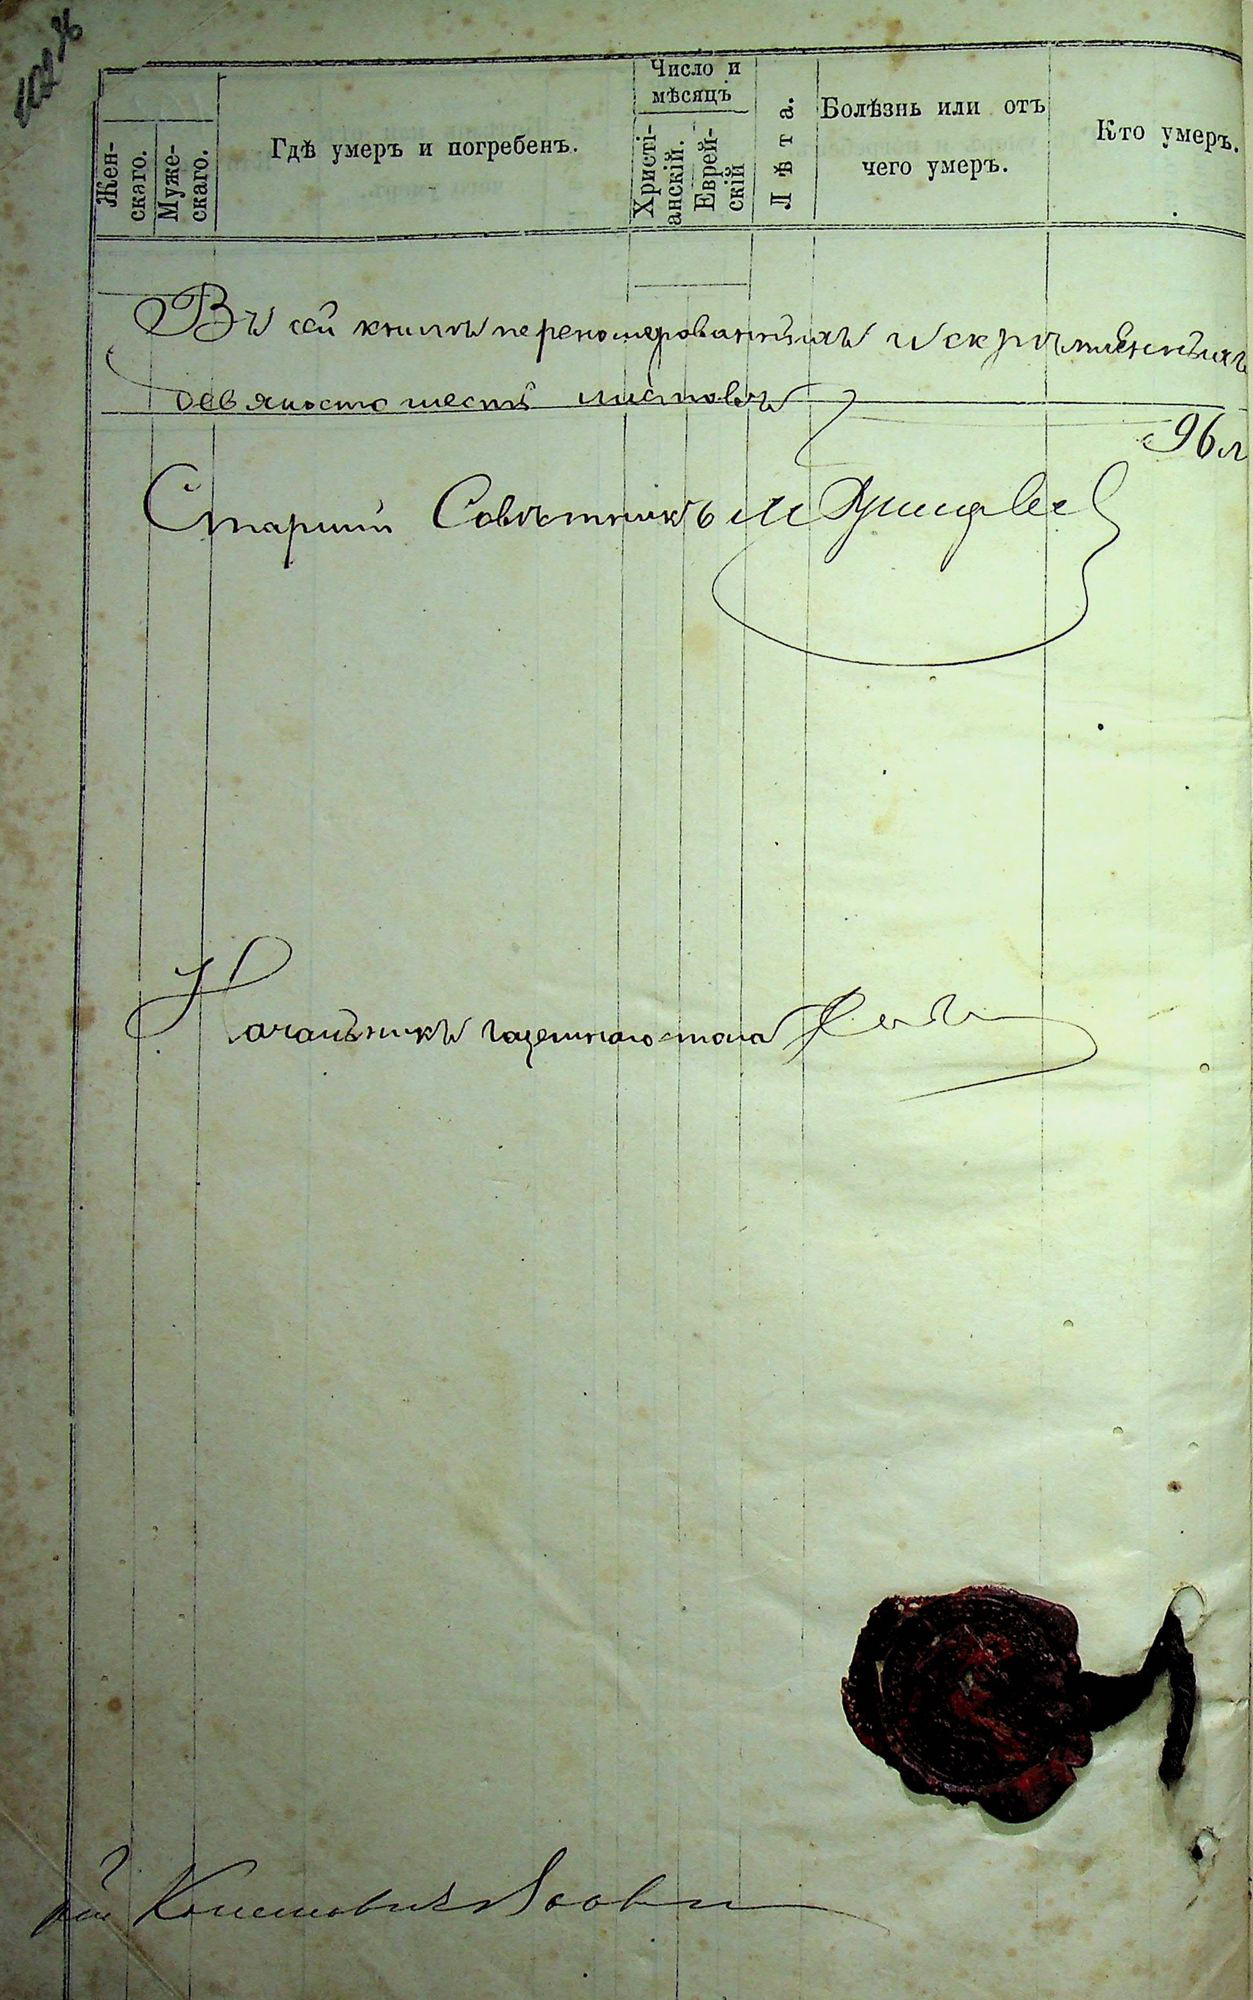 96
Жен-
скаго.
Муже-
скаго.
Гдѣ умеръ и погребенъ.
Число и
мѣсяцъ
Христі-
анскій.
Еврей-
скій
Лѣта.
Болѣзнь или отъ
чего умеръ.
Кто умеръ.
Въ сей книгѣ перенумерованныхъ и скрѣпленныхъ
девяносто шесть листовъ
96 л
Старшій Совѣтникъ
Начальникъ газетнаго стола